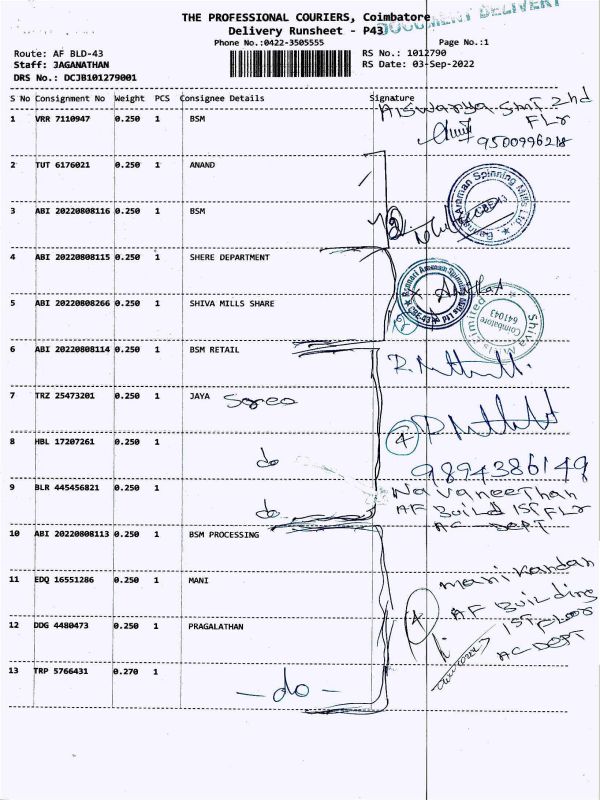 DOCUMENT DELIVERY
THE PROFESSIONAL COURIERS, Coimbatore
Delivery Runsheet - P43
Phone No.:0422-3505555
Page No.:1
Route: AF BLD-43
RS No.: 1012790
Staff: JAGANATHAN
RS Date: 03-Sep-2022
DRS No.: DCJB101279001
S No Consignment No Weight PCS Consignee Details Signature
Aiswarya.Smt 2nd
FLr
1 VRR 7110947 0.250 1 BSM
9500996218
2 TUT 6176021 0.250 1 ANAND
Bannari Amman Spinning Mills Ltd.
3 ABI 20220808116 0.250 1 BSM
4 ABI 20220808115 0.250 1 SHERE DEPARTMENT
Bannari Amman Spinning Mills Ltd
CBE-43
5 ABI 20220808266 0.250 1 SHIVA MILLS SHARE
Shiva Mills Limited
Coimbatore
641043
6 ABI 20220808114 0.250 1 BSM RETAIL
7 TRZ 25473201 0.250 1 JAYA
4
8 HBL 17207261 0.250 1
do
9894386149
9 BLR 445456821 0.250 1
do
Navaneethan
AF Build 1st FLr
AC DEPT
10 ABI 20220808113 0.250 1 BSM PROCESSING
11 EDQ 16551286 0.250 1 MANI
Manikandan
AF Building
1st Floor
AC DEPT
4
12 DDG 4480473 0.250 1 PRAGALATHAN
13 TRP 5766431 0.270 1
- do -